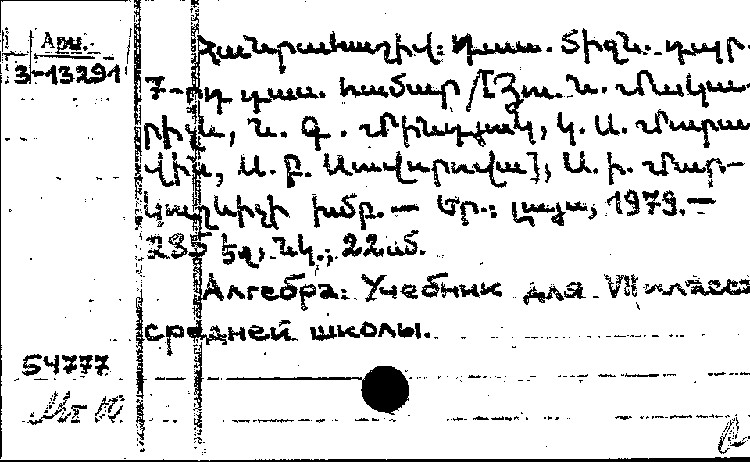 Арм.
3-13291
Հանրահաշիվ: Դաս. միջն. դպր.
7-րդ դաս. համար /[Յու. Ն. Մակա-
րիչև, Ն. Գ. Մինդյուկ, Կ. Ս. Մուրա-
վին, Ս. Բ. Սուվորովա], Ա. Ի. Մար-
կուշևիչի խմբ. — Եր.: Լույս, 1979.—
285 էջ, նկ.; 22սմ.
Алгебра: Учебник для VII класса
средней школы.
54777